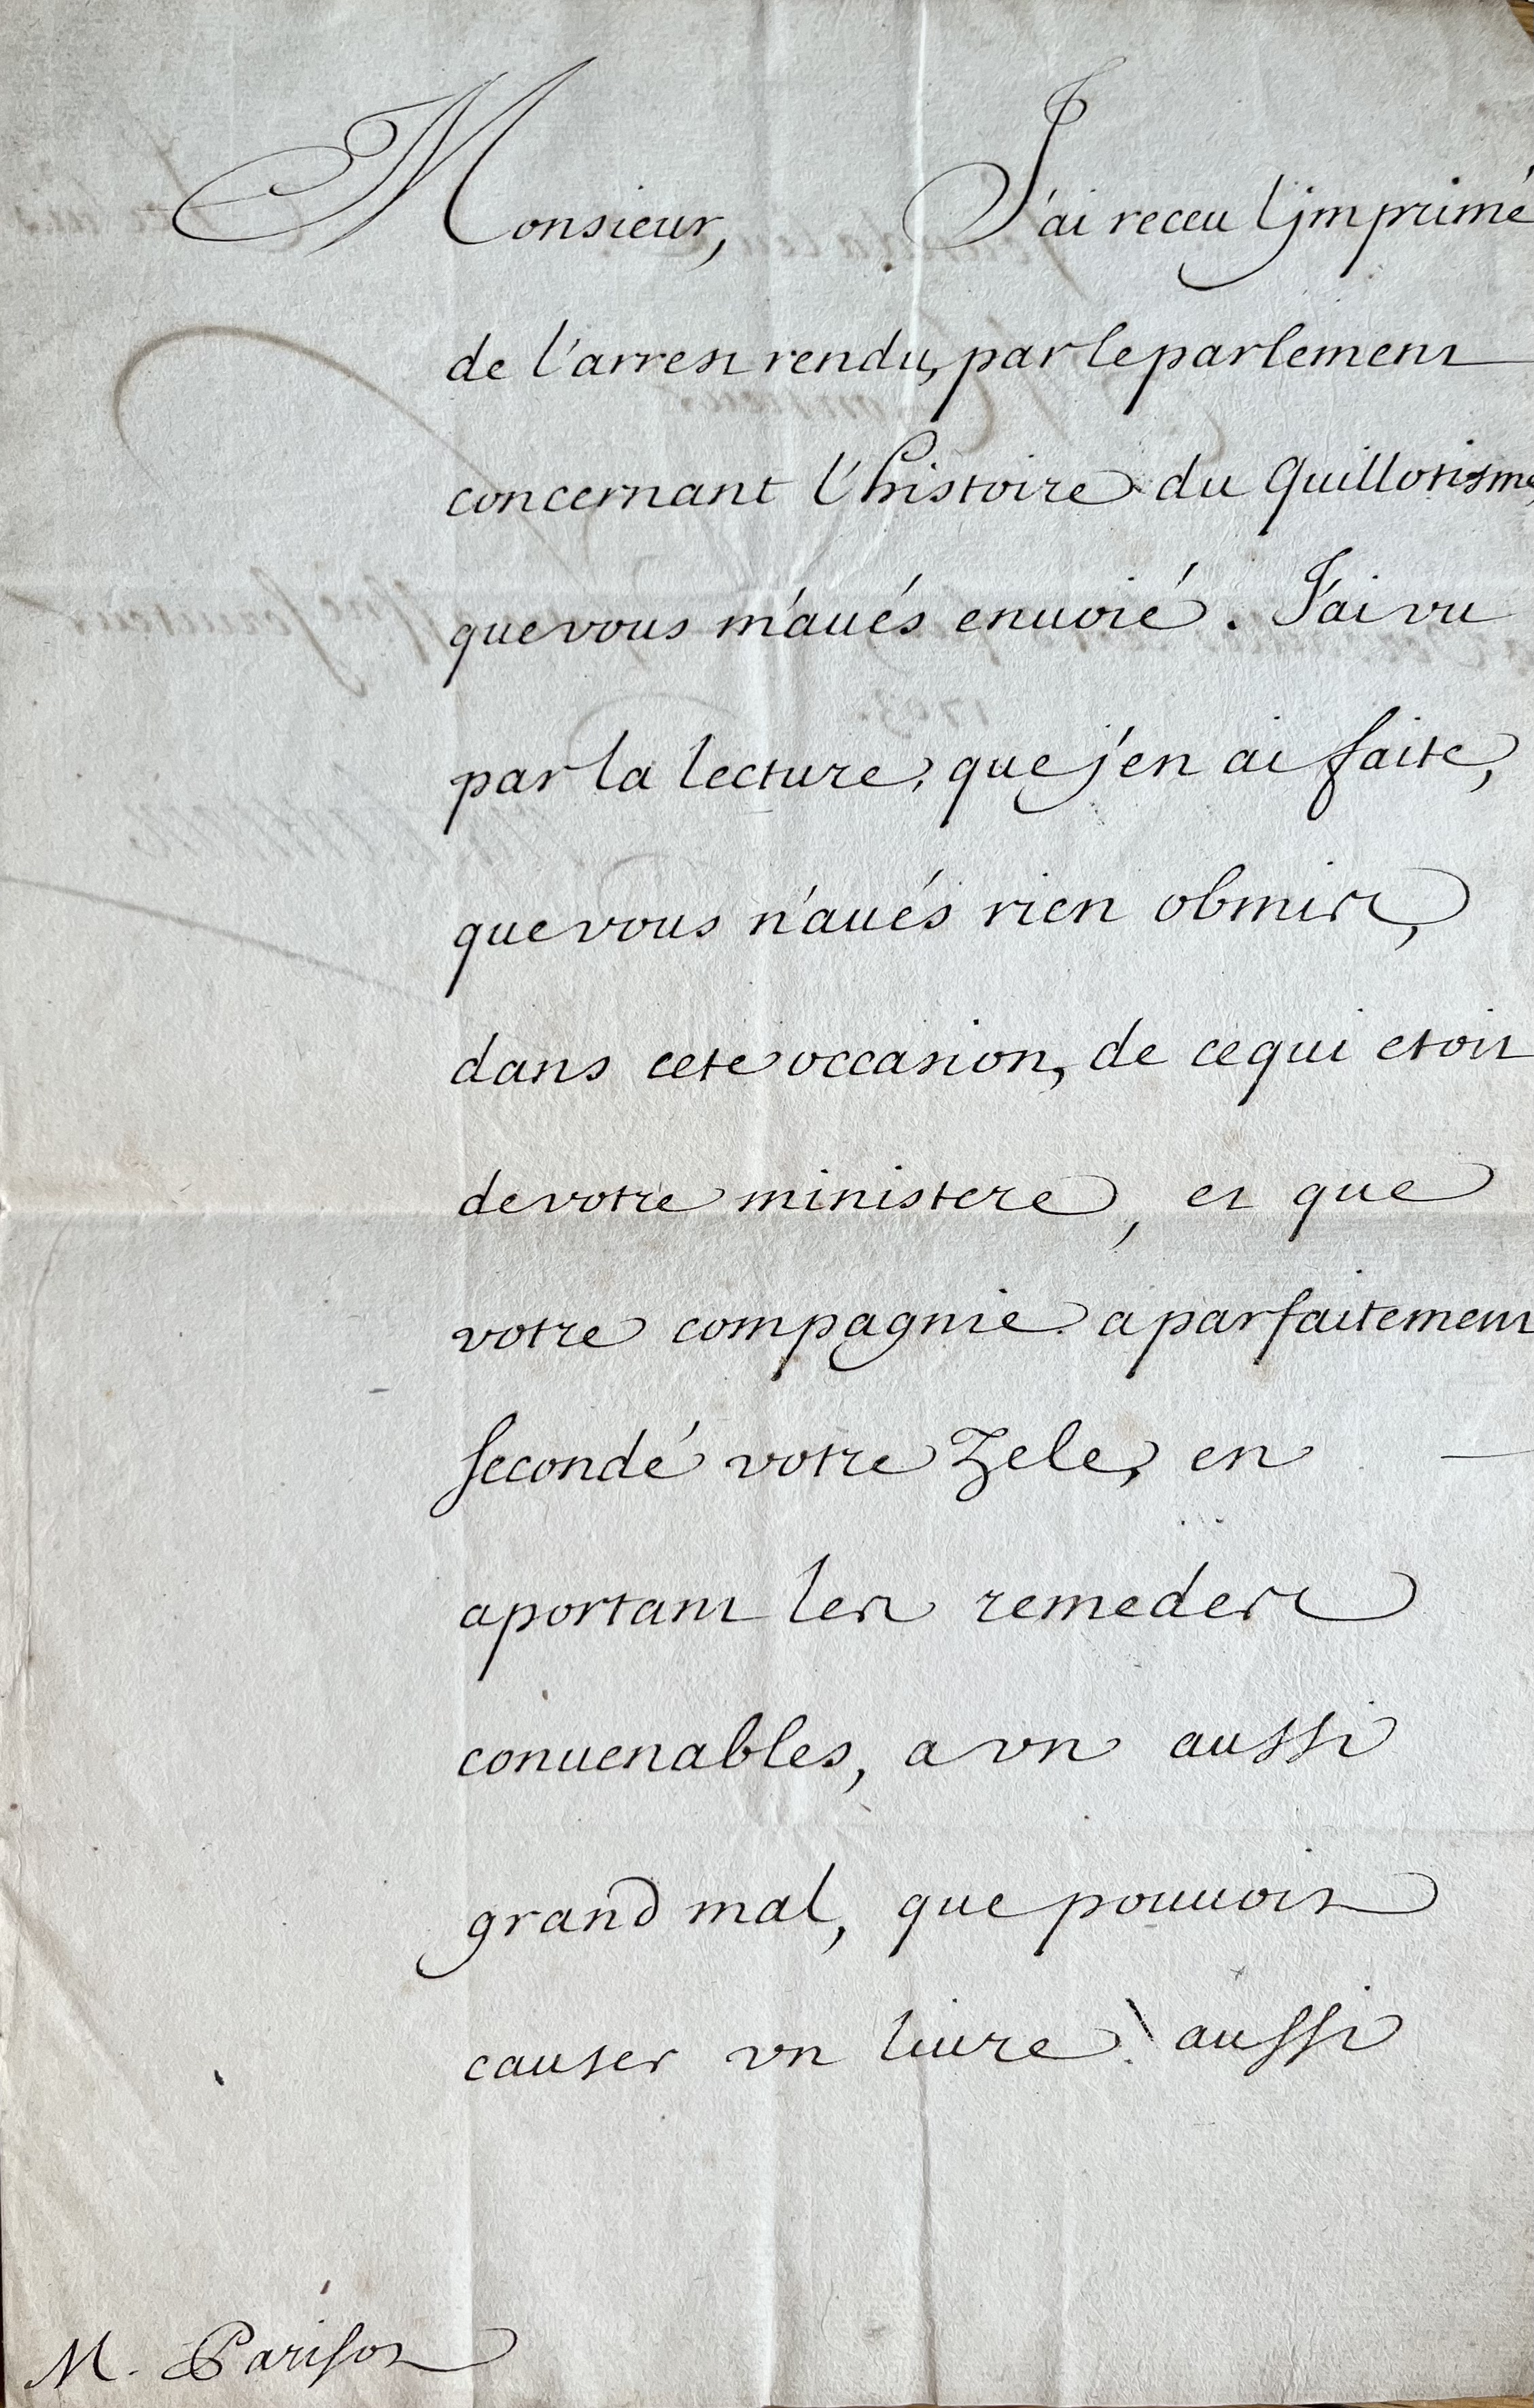 Monsieur, J'ai receu l'jmprimé
de l'arrest rendu, par le parlement
concernant l'histoire du Quillotisme,
que vous m'aués enuoié. J'ai vu
par la lecture, que j'en ai faite,
que vous n'aués rien obmis,
dans cete occasion, de ce qui etoit
de votre ministere, et que
votre compagnie a parfaitement
secondé votre Zele, en
aportant les remedes
conuenables, a vn aussi
grand mal, que pouuoit
causer vn liure aussi
M. Parisot
1703.